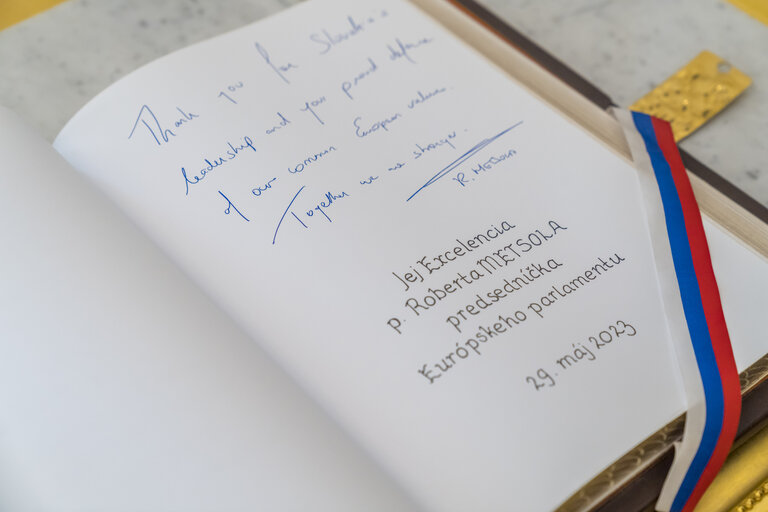 Thank you for Slovakia's
leadership and your proud defence
of our common European values.
Together we are stronger.
R. Metsola
Jej Excelencia
p. Roberta METSOLA
predsedníčka
Európskeho parlamentu
29. máj 2023